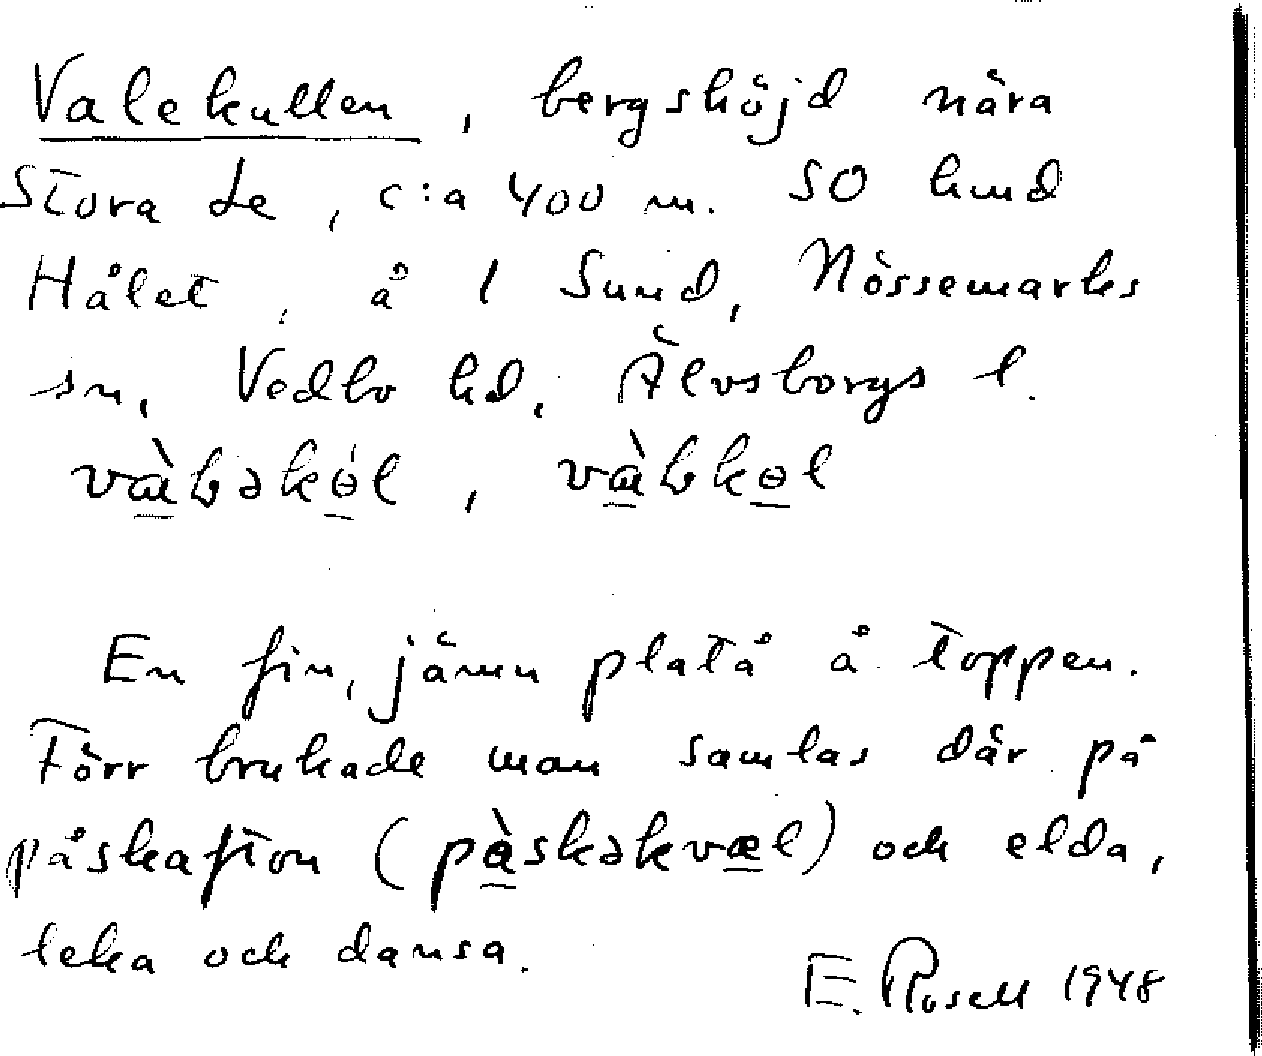 Valekullen, bergshöjd nära
Stora Le, c:a 400 m. SO hmd
Hålet, å 1 Sund, Nössemarks
sn, Vedbo hd, Älvsborgs l.
En fin, jämn platå å toppen.
Förr brukade man samlas där på
påskafton (pàskəkvæl) och elda,
leka och dansa.
E. Rosell 1948